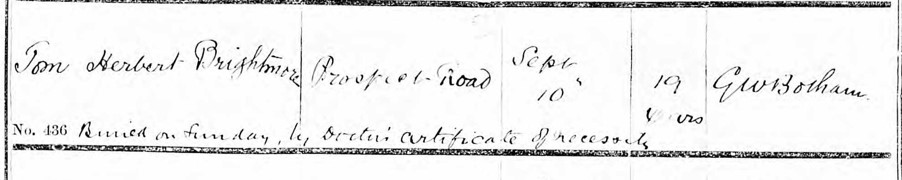 Tom Herbert Brightmore
Prospect Road
Sept
10"
19
years
GWBotham.
No. 436 Buried on Sunday, by Doctor's certificate of necessity